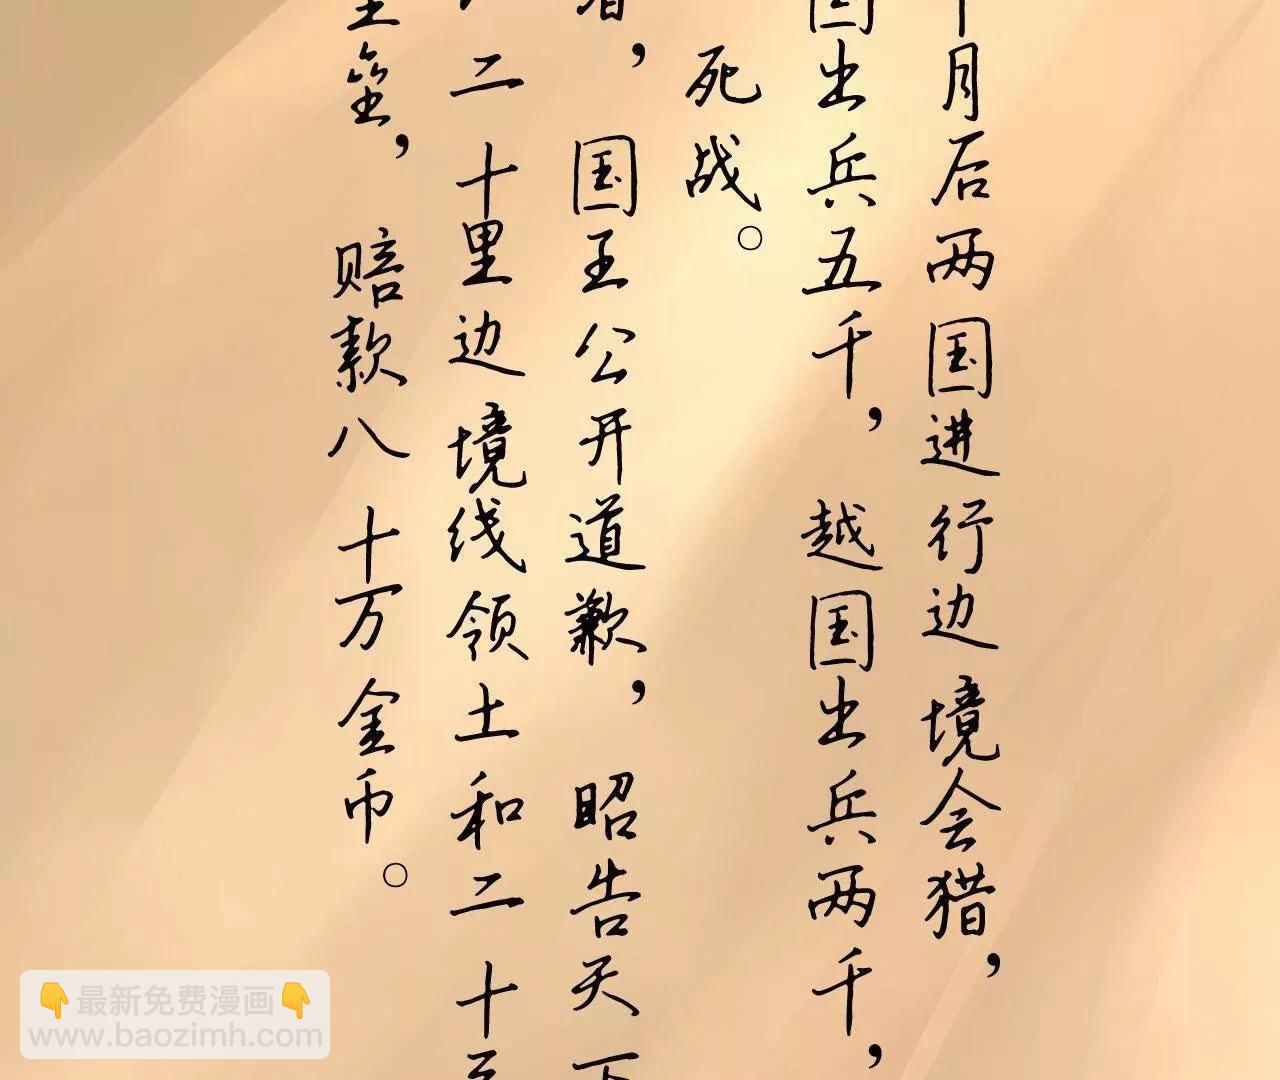 月后两国进行边境会猎，
国出兵五千，越国出兵两千，
死战。
，国王公开道歉，昭告天下
二十里边境线领土和二十
垒，赔款八十万金币。
👇最新免费漫画👇
www.baozimh.com